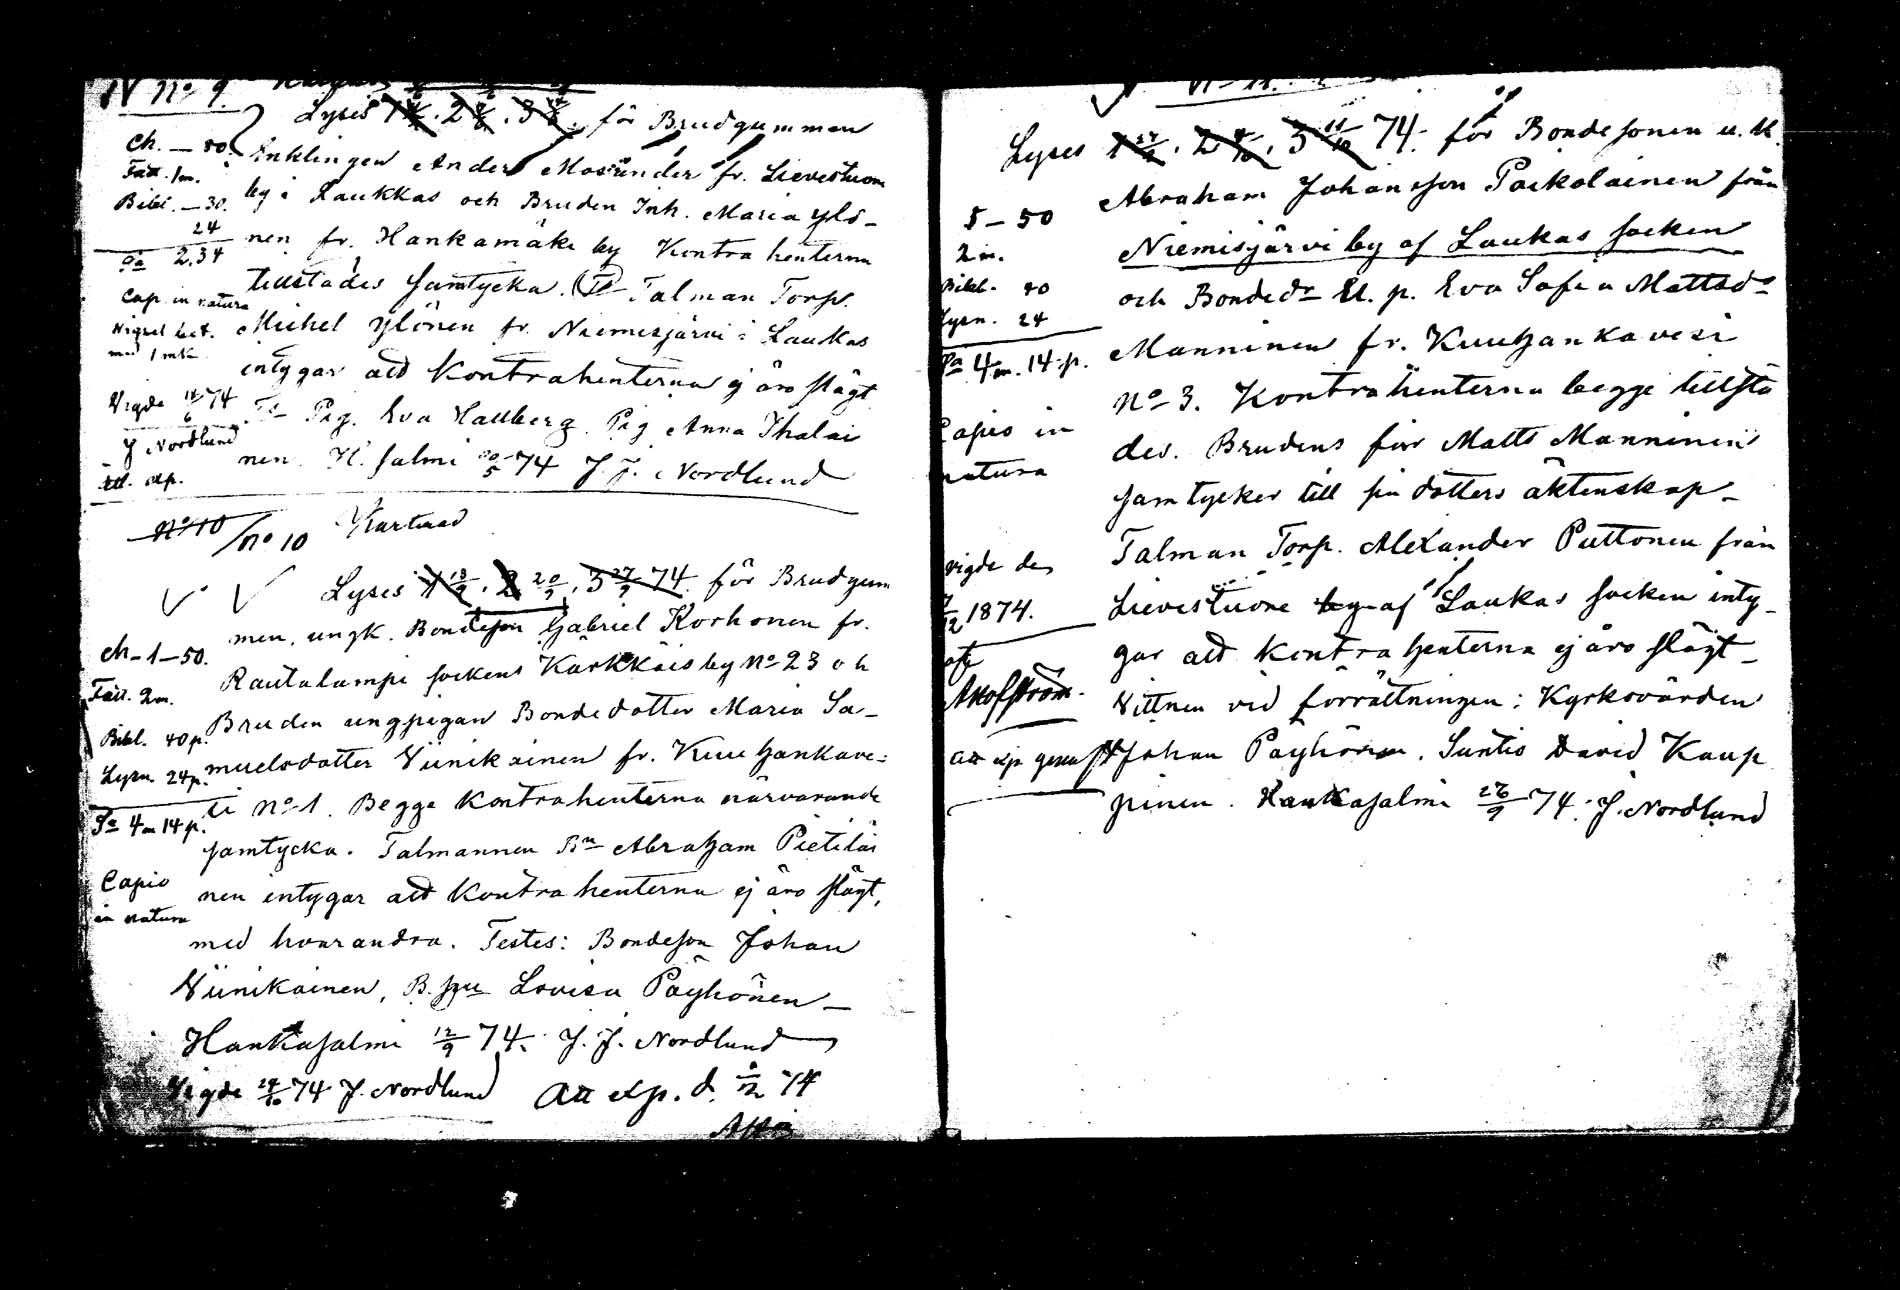 N No 9
Lyses 1 . 2 . 3 . för Brudgummen
Enklingen Anders Mosander fr. Lievestuore
by i Laukkas och Bruden Inh. Maria Ylö-
nen fr. Hankamäki by Kontrahenterna
tillstädes samtycka. Talman Torp.
Michel Ylönen fr. Niemisjärvi i Laukas
intygar att Kontrahenterna ej äro slägt
Ts Pig. Eva Hallberg Pig Anna Ihalai
nen. H. salmi 30/5 74 J. J. Nordlund
Ch. — 80.
Fatt. 1m.
Bibl. — 30.
24
Sa 2,34
Cap. in natura
Vigsel bet.
med 1 mk
Vigde 14/6 74
J Nordlund
Att. exp.
No 10
/No 10
Lyses 1 13/9 . 2 20/9 . 3 27/9 74 för Brudgum
men, ungk. Bondeson Gabriel Korhonen fr.
Rautalampi sockens Kärkkäis by No 23 och
Bruden ungpigan Bondedotter Maria Sa-
muelsdotter Viinikainen fr. Kuuhankave-
si No 1. Begge Kontrahenterna närvarande
samtycka. Talmannen Bn Abraham Pietiläi
nen intygar att Kontrahenterna ej äro slägt,
med hvarandra. Testes: Bondeson Johan
Viinikainen, B.hu Lovisa Päyhönen —
Hankasalmi 12/9 74. J. J. Nordlund
Vigde 24/10 74 J. Nordlund
Att exp. d. /12 74
Ch — 1 — 50.
Fatt. 2m.
Bibl. 40 p.
Lysn 24 p.
Sa 4m 14 p.
Capio
in natura
Lyses 1 27/9 . 2 4/10 . 3 11/10 74. för Bondesonen u. k.
Abraham Johansson Paikolainen från
Niemisjärvi by af Laukas socken
och Bondedr U. p. Eva Sofia Mattsdr
Manninen fr. Kuuhankavesi
No 3. Kontrahenterna begge tillstä
des. Brudens far Matts Manninen
samtycker till sin dotters äktenskap —
Talman Torp. Alexander Puttonen från
Lievestuore by af Laukas socken inty-
gar att kontrahenterna ej äro slägt —
Vittnen vid förrättningen: Kyrkovärden
Johan Päyhönen. Suntio David Kaup
pinen. Hankasalmi 26/9 74. J. Nordlund
5 — 50
2 m.
Bibl. 40
Lysn. 24
Sa 4 m. 14 p.
Capio in
natura
vigde den
/12 1874.
af